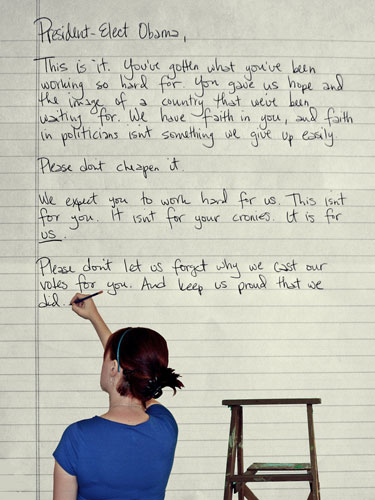 President-Elect Obama,
This is it. You've gotten what you've been
working so hard for. You gave us hope and
the image of a country that we've been
waiting for. We have faith in you, and faith
in politicians isnt something we give up easily
Please dont cheapen it.
We expect you to work hard for us. This isnt
for you. It isnt for your cronies. It is for
us.
Please don't let us forget why we cast our
votes for you. And keep us proud that we
did.